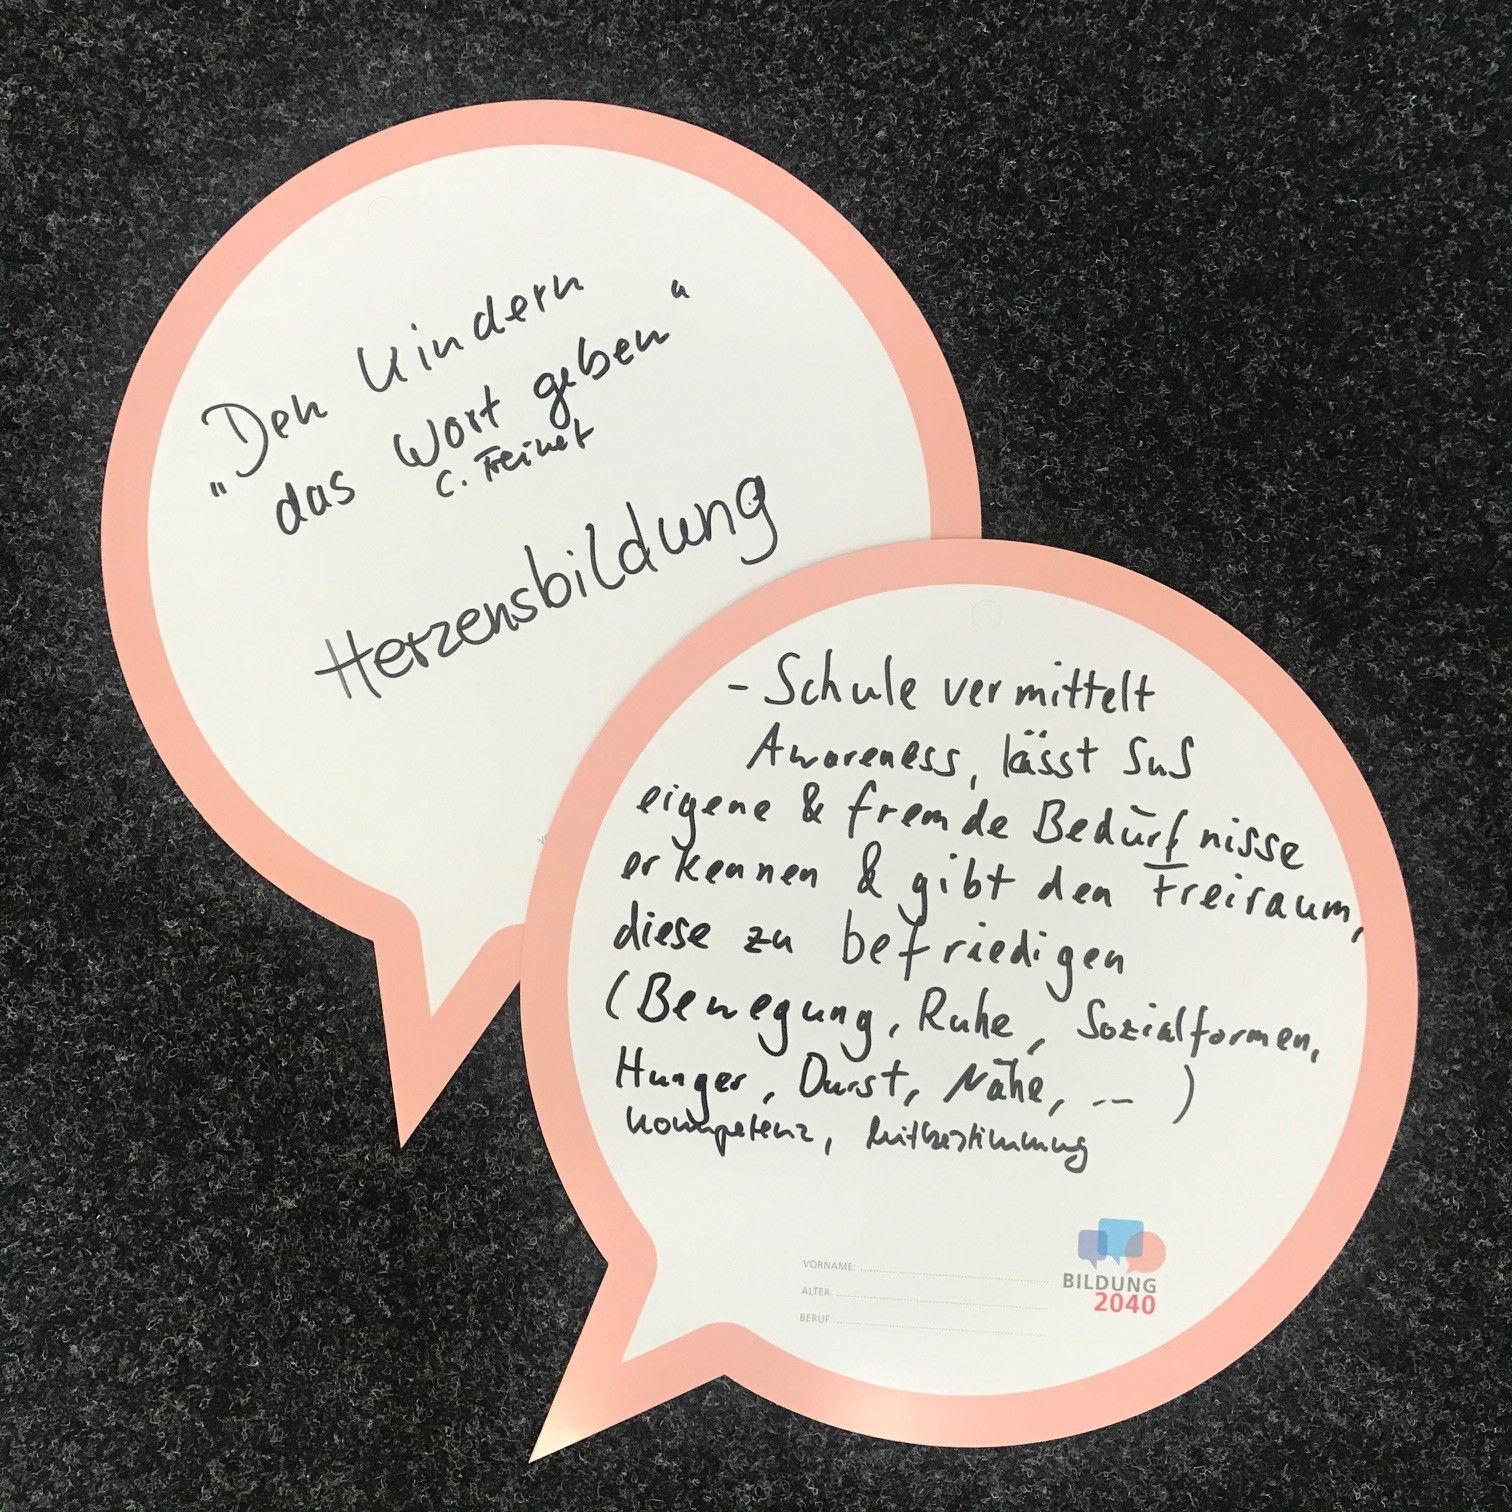 „Den Kindern
das Wort geben“
C. Freinet
Herzensbildung
- Schule vermittelt
Awareness, lässt SuS
eigene & fremde Bedürfnisse
erkennen & gibt den Freiraum,
diese zu befriedigen
(Bewegung, Ruhe, Sozialformen,
Hunger, Durst, Nähe, ...)
Kompetenz, Mitbestimmung
VORNAME:
ALTER:
BERUF:
BILDUNG
2040